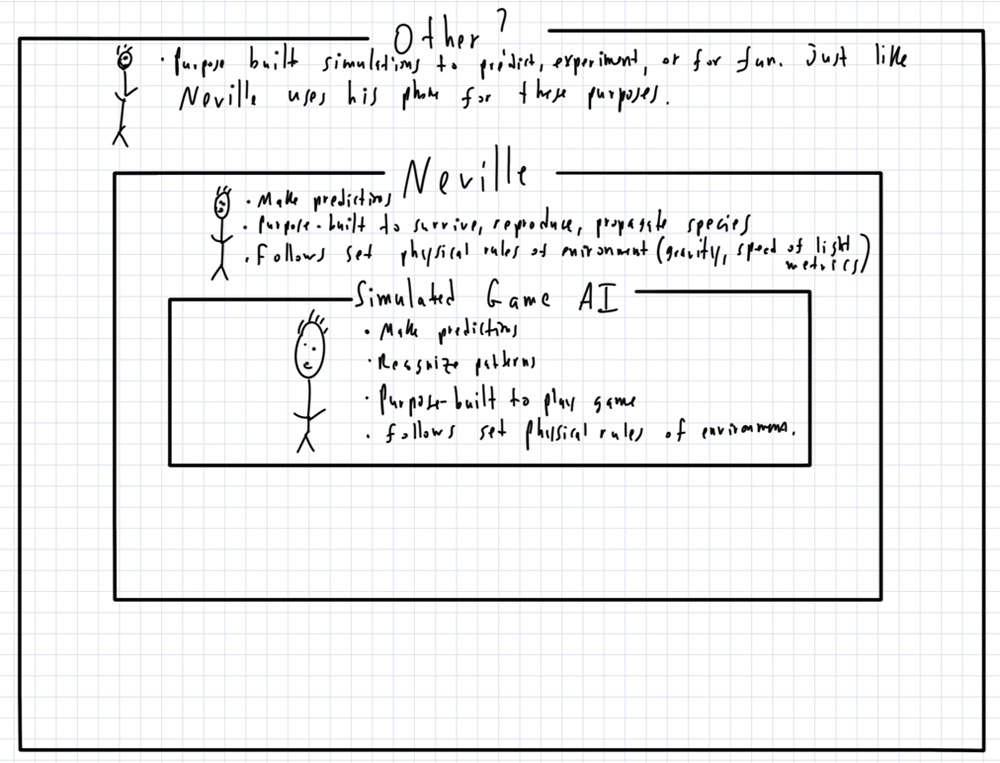 Other?
· Purpose built simulations to predict, experiment, or for fun. Just like
Neville uses his phone for these purposes.
Neville
· Make predictions
· Purpose-built to survive, reproduce, propagate species
· Follows set physical rules of environment (gravity, speed of light
metrics)
Simulated Game AI
· Make predictions
· Recognize patterns
· Purpose-built to play game
· Follows set physical rules of environment.